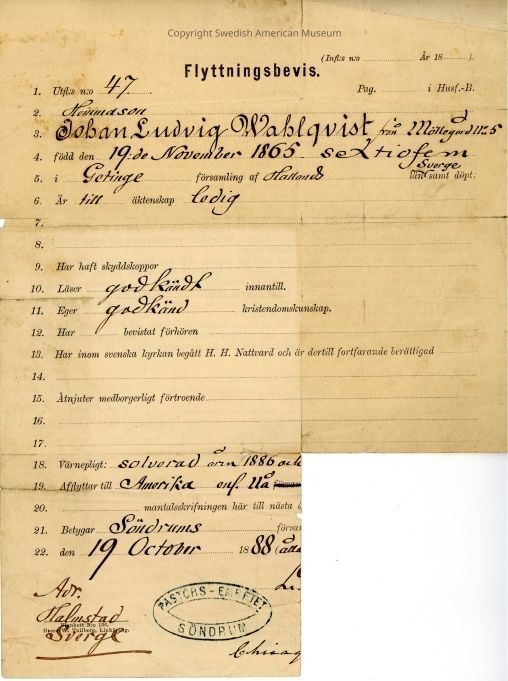 Copyright Swedish American Museum
(Infl:s n:o År 18 ).
Flyttningsbevis.
1. Utfl:s n:o 47. Pag. i Husf.-B.
2. Hemmason
3. Johan Ludvig Wahlqvist från Möllegård No 5
4. född den 19:de November 1865 sextiofem
5. i Getinge församling af Hallands Sverge län samt döpt:
6. Är till äktenskap ledig
7.
8.
9. Har haft skyddskoppor
10. Läser godkändt innantill.
11. Eger godkänd kristendomskunskap.
12. Har bevistat förhören
13. Har inom svenska kyrkan begått H. H. Nattvard och är dertill fortfarande berättigad
14.
15. Åtnjuter medborgerligt förtroende
16.
17.
18. Värnepligt: åren 1886 och
19. Afflyttar till Amerika enl.
20. mantalsskrifningen här till nästa
21. Betygar Söndrums försam
22. den 19 October 1888 (åtta
Adr.
Halmstad
Blankett N:o 138.
Sverge
PASTORS-EMBETET
SÖNDRUM
Chicag